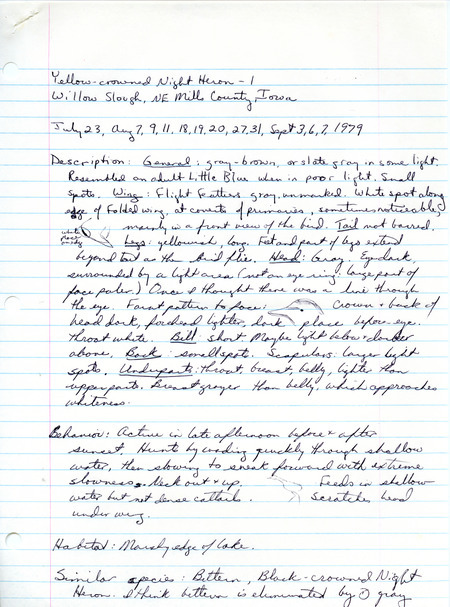 Yellow-crowned Night Heron - 1
Willow Slough, NE Mills County, Iowa
July 23, Aug 7, 9, 11, 18, 19, 20, 27, 31, Sept 3, 6, 7, 1979
Description: General: gray-brown, or slate gray in some light.
Resembled an adult Little Blue when in poor light. Small
spots. Wing: Flight feathers gray, unmarked. White spot along
edge of folded wing, at coverts of primaries, sometimes noticeable,
mainly in a front view of the bird. Tail not barred.
white
Legs: yellowish, long. Feet and part of legs extend
beyond tail as the bird flies. Head: Gray. Eye dark,
surrounded by a light area (not an eye ring: large part of
face paler.) Once I thought there was a line through
the eye. Faint pattern to face: Crown & back of
head dark, forehead lighter, dark place before eye.
throat white. Bill: short. Maybe light below & darker
above. Back: small spots. Scapulars: larger light
spots. Underparts: throat, breast, belly, lighter than
upperparts. Breast grayer than belly, which approaches
whiteness.
Behavior: Active in late afternoon before & after
sunset. Hunts by wading quickly through shallow
water, then slowing to sneak forward with extreme
slowness. Neck out & up. Feeds in shallow
water but not dense cattails. Scratches head
under wing.
Habitat: Marshy edge of lake.
Similar species: Bittern, Black-crowned Night
Heron. I think bittern is eliminated by ① gray